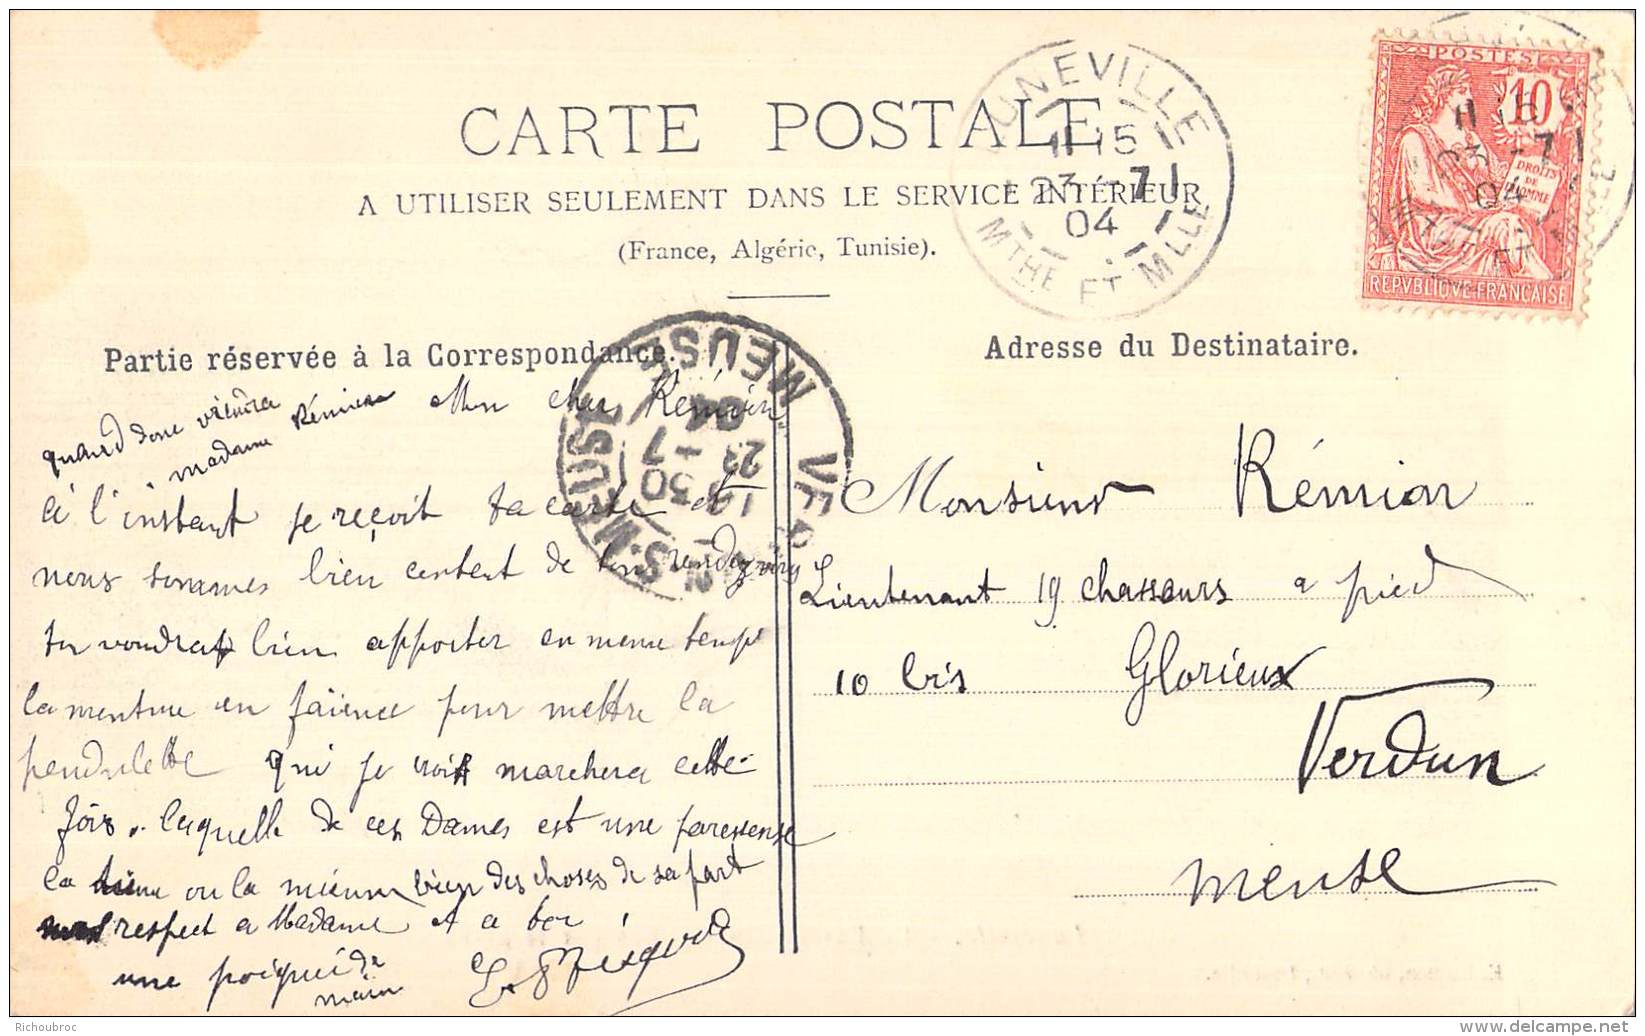 CARTE POSTALE
A UTILISER SEULEMENT DANS LE SERVICE INTÉRIEUR
(France, Algérie, Tunisie).
LUNEVILLE
11 15
23 -7
04
MTHE ET MLLE
POSTES
10
DROITS DE L'HOMME
REPVBLIQVE FRANÇAISE
Partie réservée à la Correspondance.
MEUSE
30
23 -7
04
quand donc viendra
madame Rémion
Mon cher Rémion
à l'instant je reçoit ta carte et
nous sommes bien content de ton rendez vous
tu voudra bien apporter en meme temps
la monture en faïence pour mettre la
pendulette qui je crois marchera cette
fois. laquelle de ces Dames est une paresseuse
la tienne ou la mienne bien des choses de sa part
respect a Madame et a toi
une poignée de
main
Adresse du Destinataire.
Monsieur Rémion
Lieutenant 19 chasseurs a pied
10 bis Glorieux
Verdun
Meuse
Richoubroc
www.delcampe.net